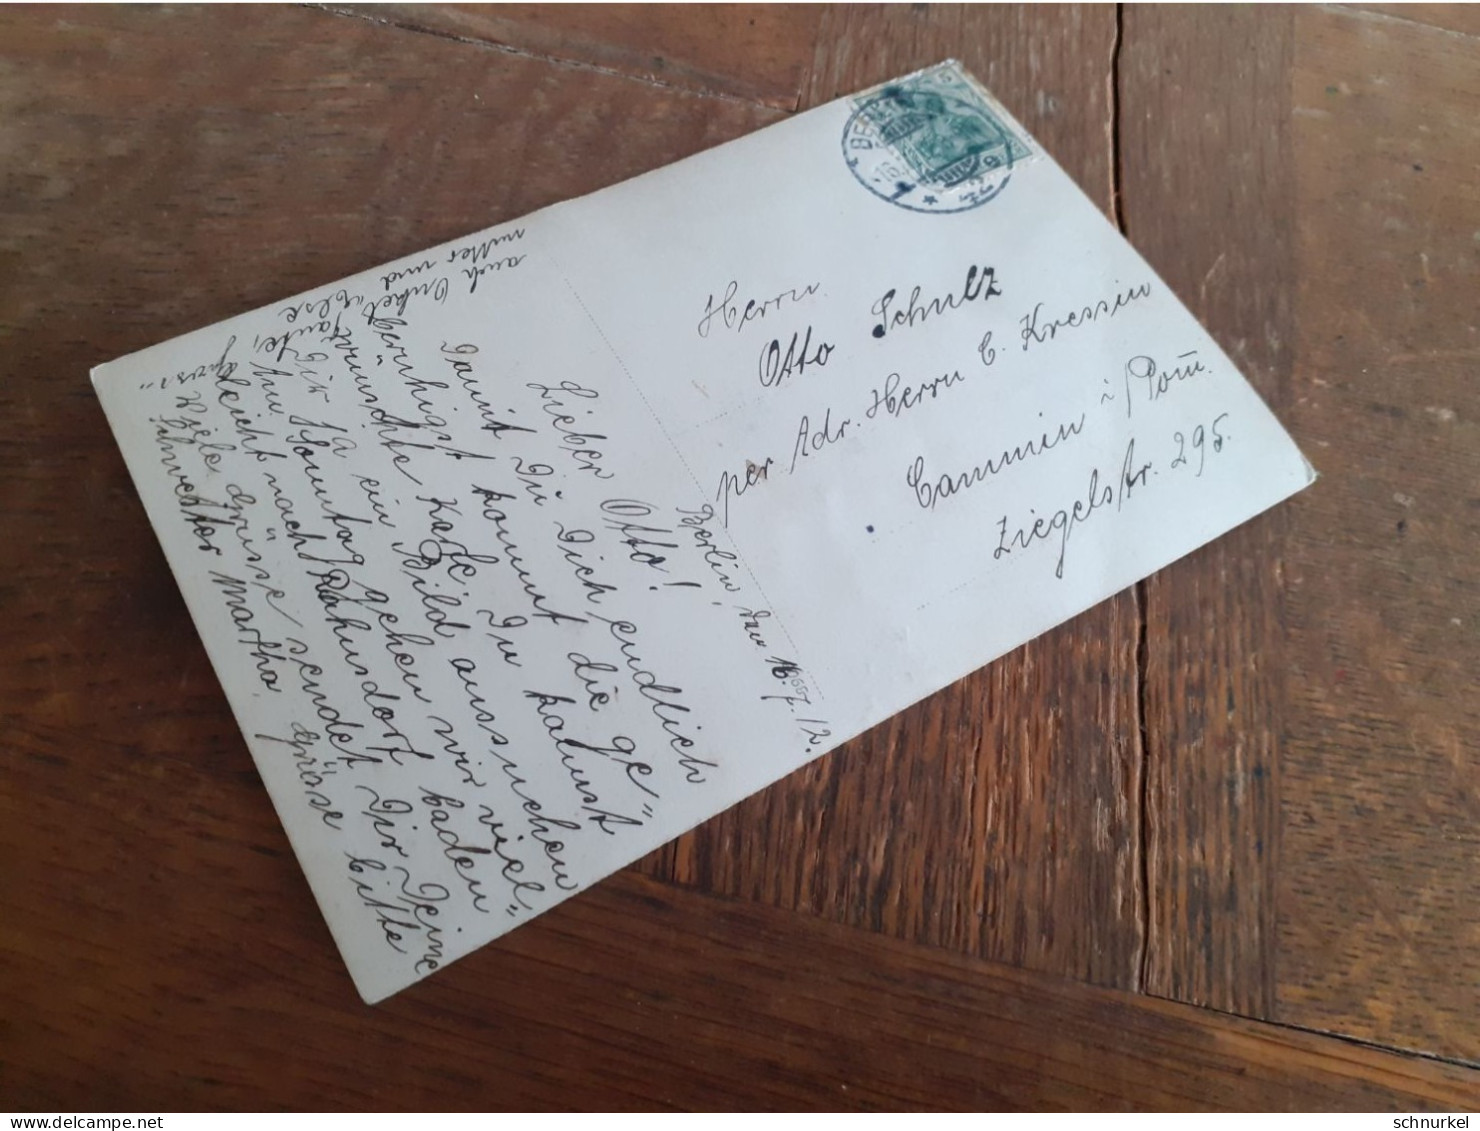 Berlin, den 16.7.12.
Lieber Otto!
Damit Du Dich endlich
beruhigst kommt die ge"
wünschte Karte. Du kannst
Dir ja ein Bild aussuchen
Am Sonntag gehen wir viel"
leicht nach Rahnsdorf baden
Viele Grüsse sendet Dir Deine
Schwester Martha. Grüsse bitte
auch Onkel,
Tante,
mutter und
Herrn
Otto Schulz
per Adr. Herrn C. Kressin
Cammin i/Pom.
Ziegelstr. 295.
BERLIN
5
schnurkel